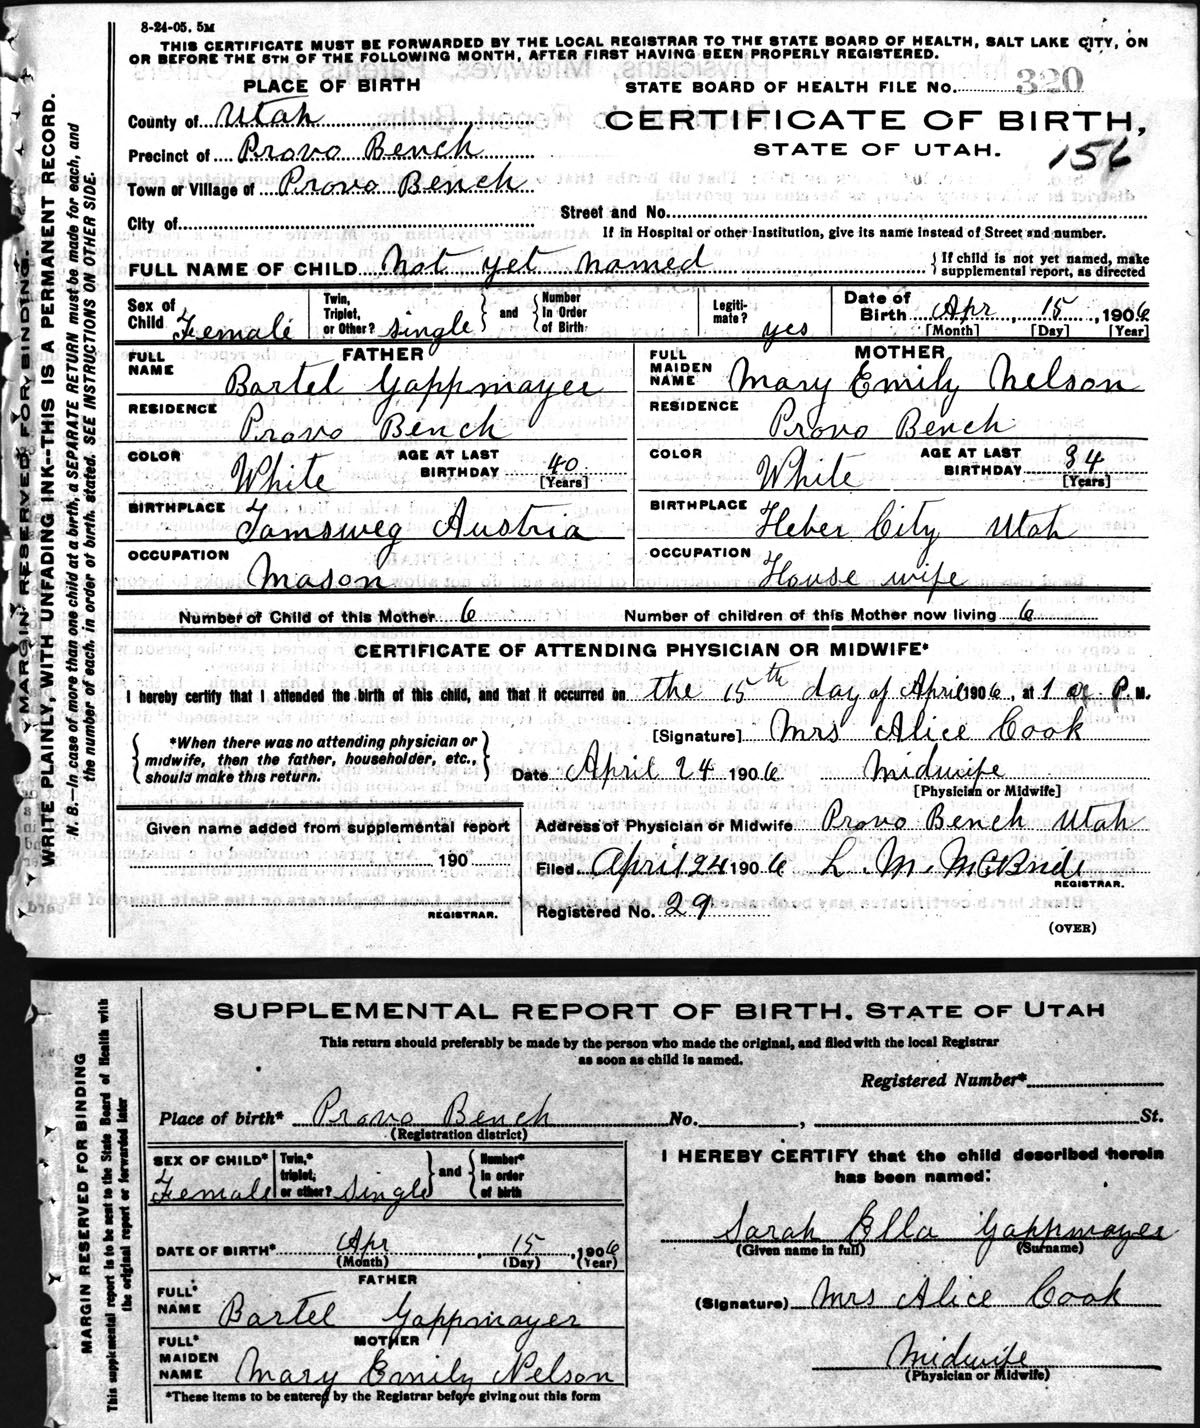 8-24-05. 5M
THIS CERTIFICATE MUST BE FORWARDED BY THE LOCAL REGISTRAR TO THE STATE BOARD OF HEALTH, SALT LAKE CITY, ON
OR BEFORE THE 5TH OF THE FOLLOWING MONTH, AFTER FIRST HAVING BEEN PROPERLY REGISTERED.
PLACE OF BIRTH
STATE BOARD OF HEALTH FILE No. 320
County of Utah
CERTIFICATE OF BIRTH,
Precinct of Provo Bench
STATE OF UTAH. 156
Town or Village of Provo Bench
Street and No.
City of
If in Hospital or other Institution, give its name instead of Street and number.
FULL NAME OF CHILD Not yet named
If child is not yet named, make
supplemental report, as directed
Sex of
Child Female
Twin,
Triplet,
or Other? single
and
Number
In Order
of Birth
Legiti-
mate? yes
Date of
Birth Apr 15, 1906
[Month] [Day] [Year]
FATHER
FULL
NAME Bartel Gappmayer
RESIDENCE Provo Bench
COLOR White
AGE AT LAST
BIRTHDAY 40
[Years]
BIRTHPLACE Tamsweg Austria
OCCUPATION Mason
MOTHER
FULL
MAIDEN
NAME Mary Emily Nelson
RESIDENCE Provo Bench
COLOR White
AGE AT LAST
BIRTHDAY 34
[Years]
BIRTHPLACE Heber City Utah
OCCUPATION House wife
Number of Child of this Mother 6
Number of children of this Mother now living 6
CERTIFICATE OF ATTENDING PHYSICIAN OR MIDWIFE*
I hereby certify that I attended the birth of this child, and that it occurred on the 15th day of April 1906, at 1 P. M.
[Signature] Mrs Alice Cook
*When there was no attending physician or
midwife, then the father, householder, etc.,
should make this return.
Date April 24 1906 Midwife
[Physician or Midwife]
Given name added from supplemental report
190
REGISTRAR.
Address of Physician or Midwife Provo Bench Utah
Filed April 24 1906 L. M. McBride
REGISTRAR.
Registered No. 29
(OVER)
MARGIN RESERVED FOR BINDING.
WRITE PLAINLY, WITH UNFADING INK--THIS IS A PERMANENT RECORD.
N. B.--In case of more than one child at a birth, a SEPARATE RETURN must be made for each, and
the number of each. in order of birth. stated. SEE INSTRUCTIONS ON OTHER SIDE.
SUPPLEMENTAL REPORT OF BIRTH. STATE OF UTAH
This return should preferably be made by the person who made the original, and filed with the local Registrar
as soon as child is named.
Registered Number*
Place of birth* Provo Bench No. , St.
(Registration district)
SEX OF CHILD*
Female
Twin,*
triplet,
or other? Single
and
Number*
in order
of birth
DATE OF BIRTH* Apr, 15, 1906
(Month) (Day) (Year)
FATHER
FULL*
NAME Bartel Gappmayer
MOTHER
FULL*
MAIDEN
NAME Mary Emily Nelson
*These items to be entered by the Registrar before giving out this form
I HEREBY CERTIFY that the child described herein
has been named:
Sarah Ella Gappmayer
(Given name in full) (Surname)
(Signature) Mrs Alice Cook
Midwife
(Physician or Midwife)
MARGIN RESERVED FOR BINDING
This supplemental report is to be sent to the State Board of Health with
the original report or forwarded later